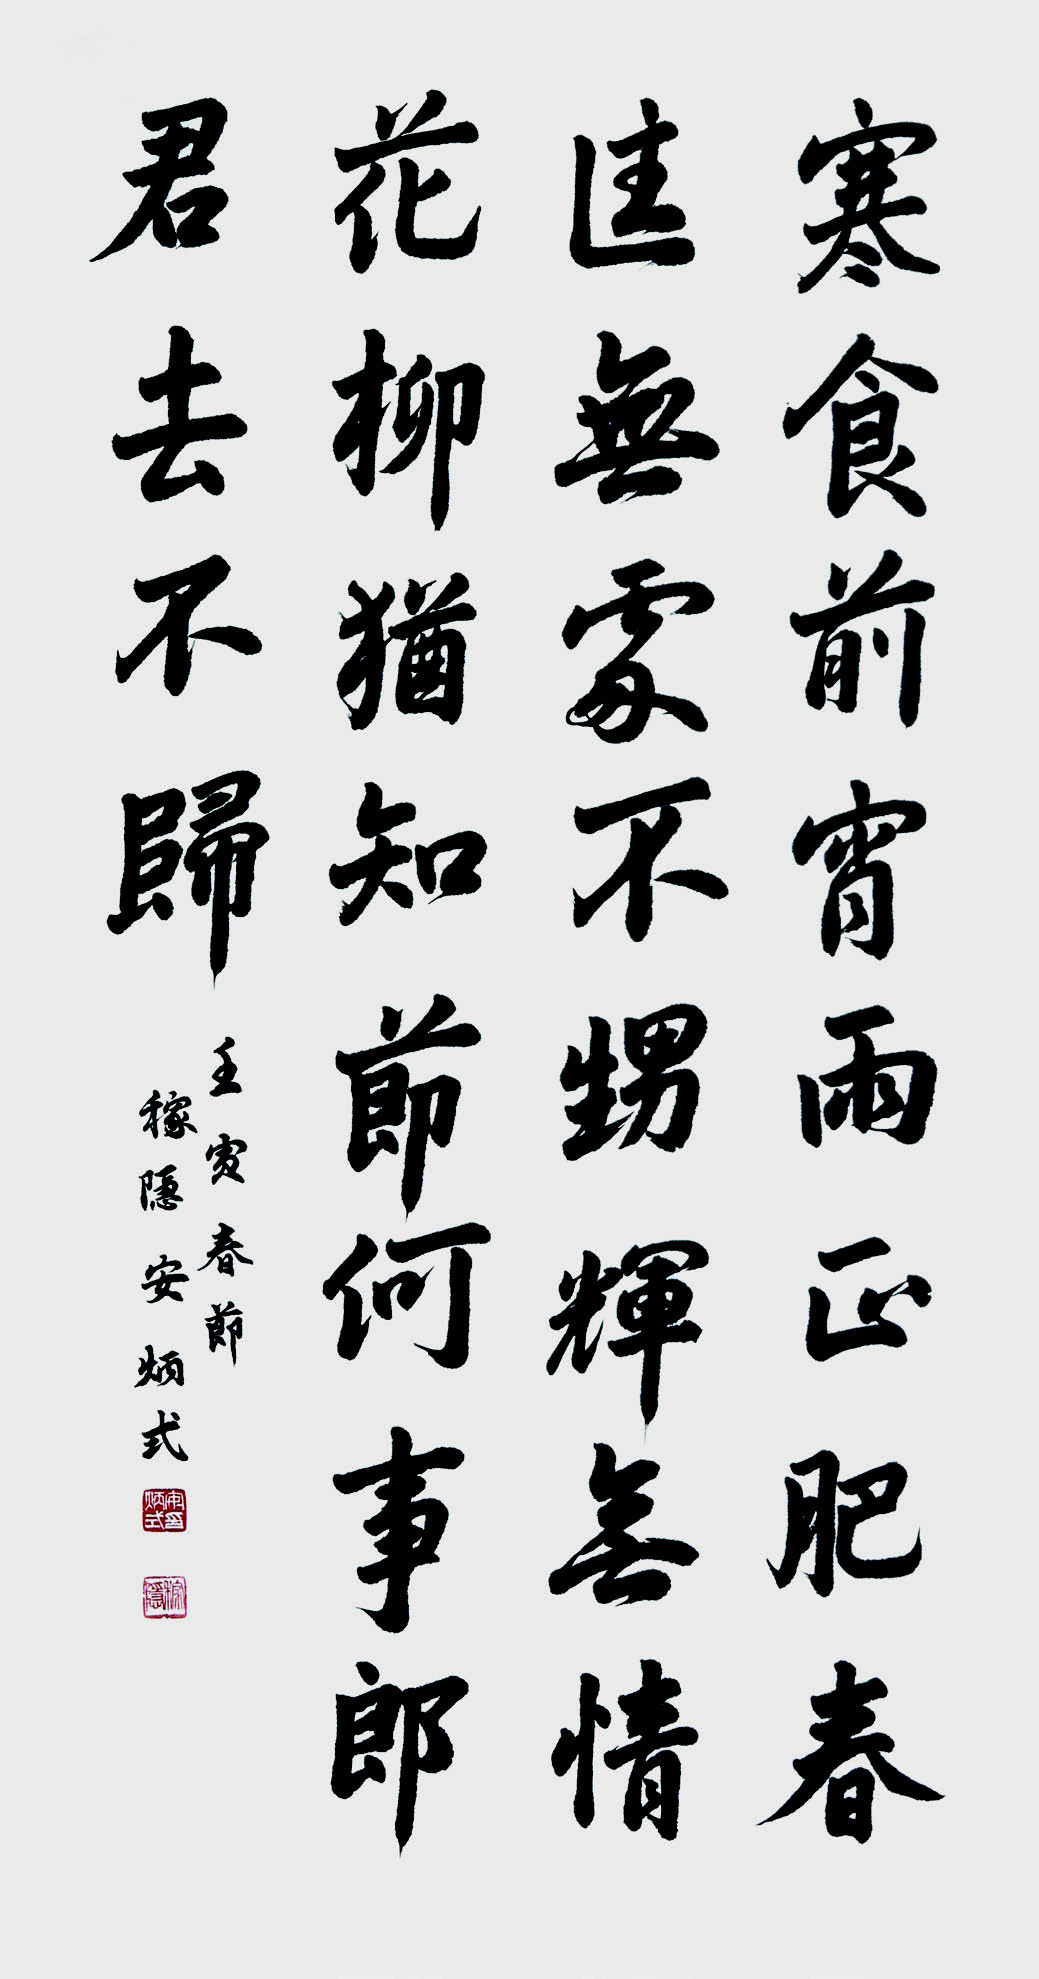 寒食前宵雨正肥春
住無處不甥輝無情
花柳猶知節何事郎
君去不歸
壬寅春節
稼隱安炳式
安炳式印
稼隱